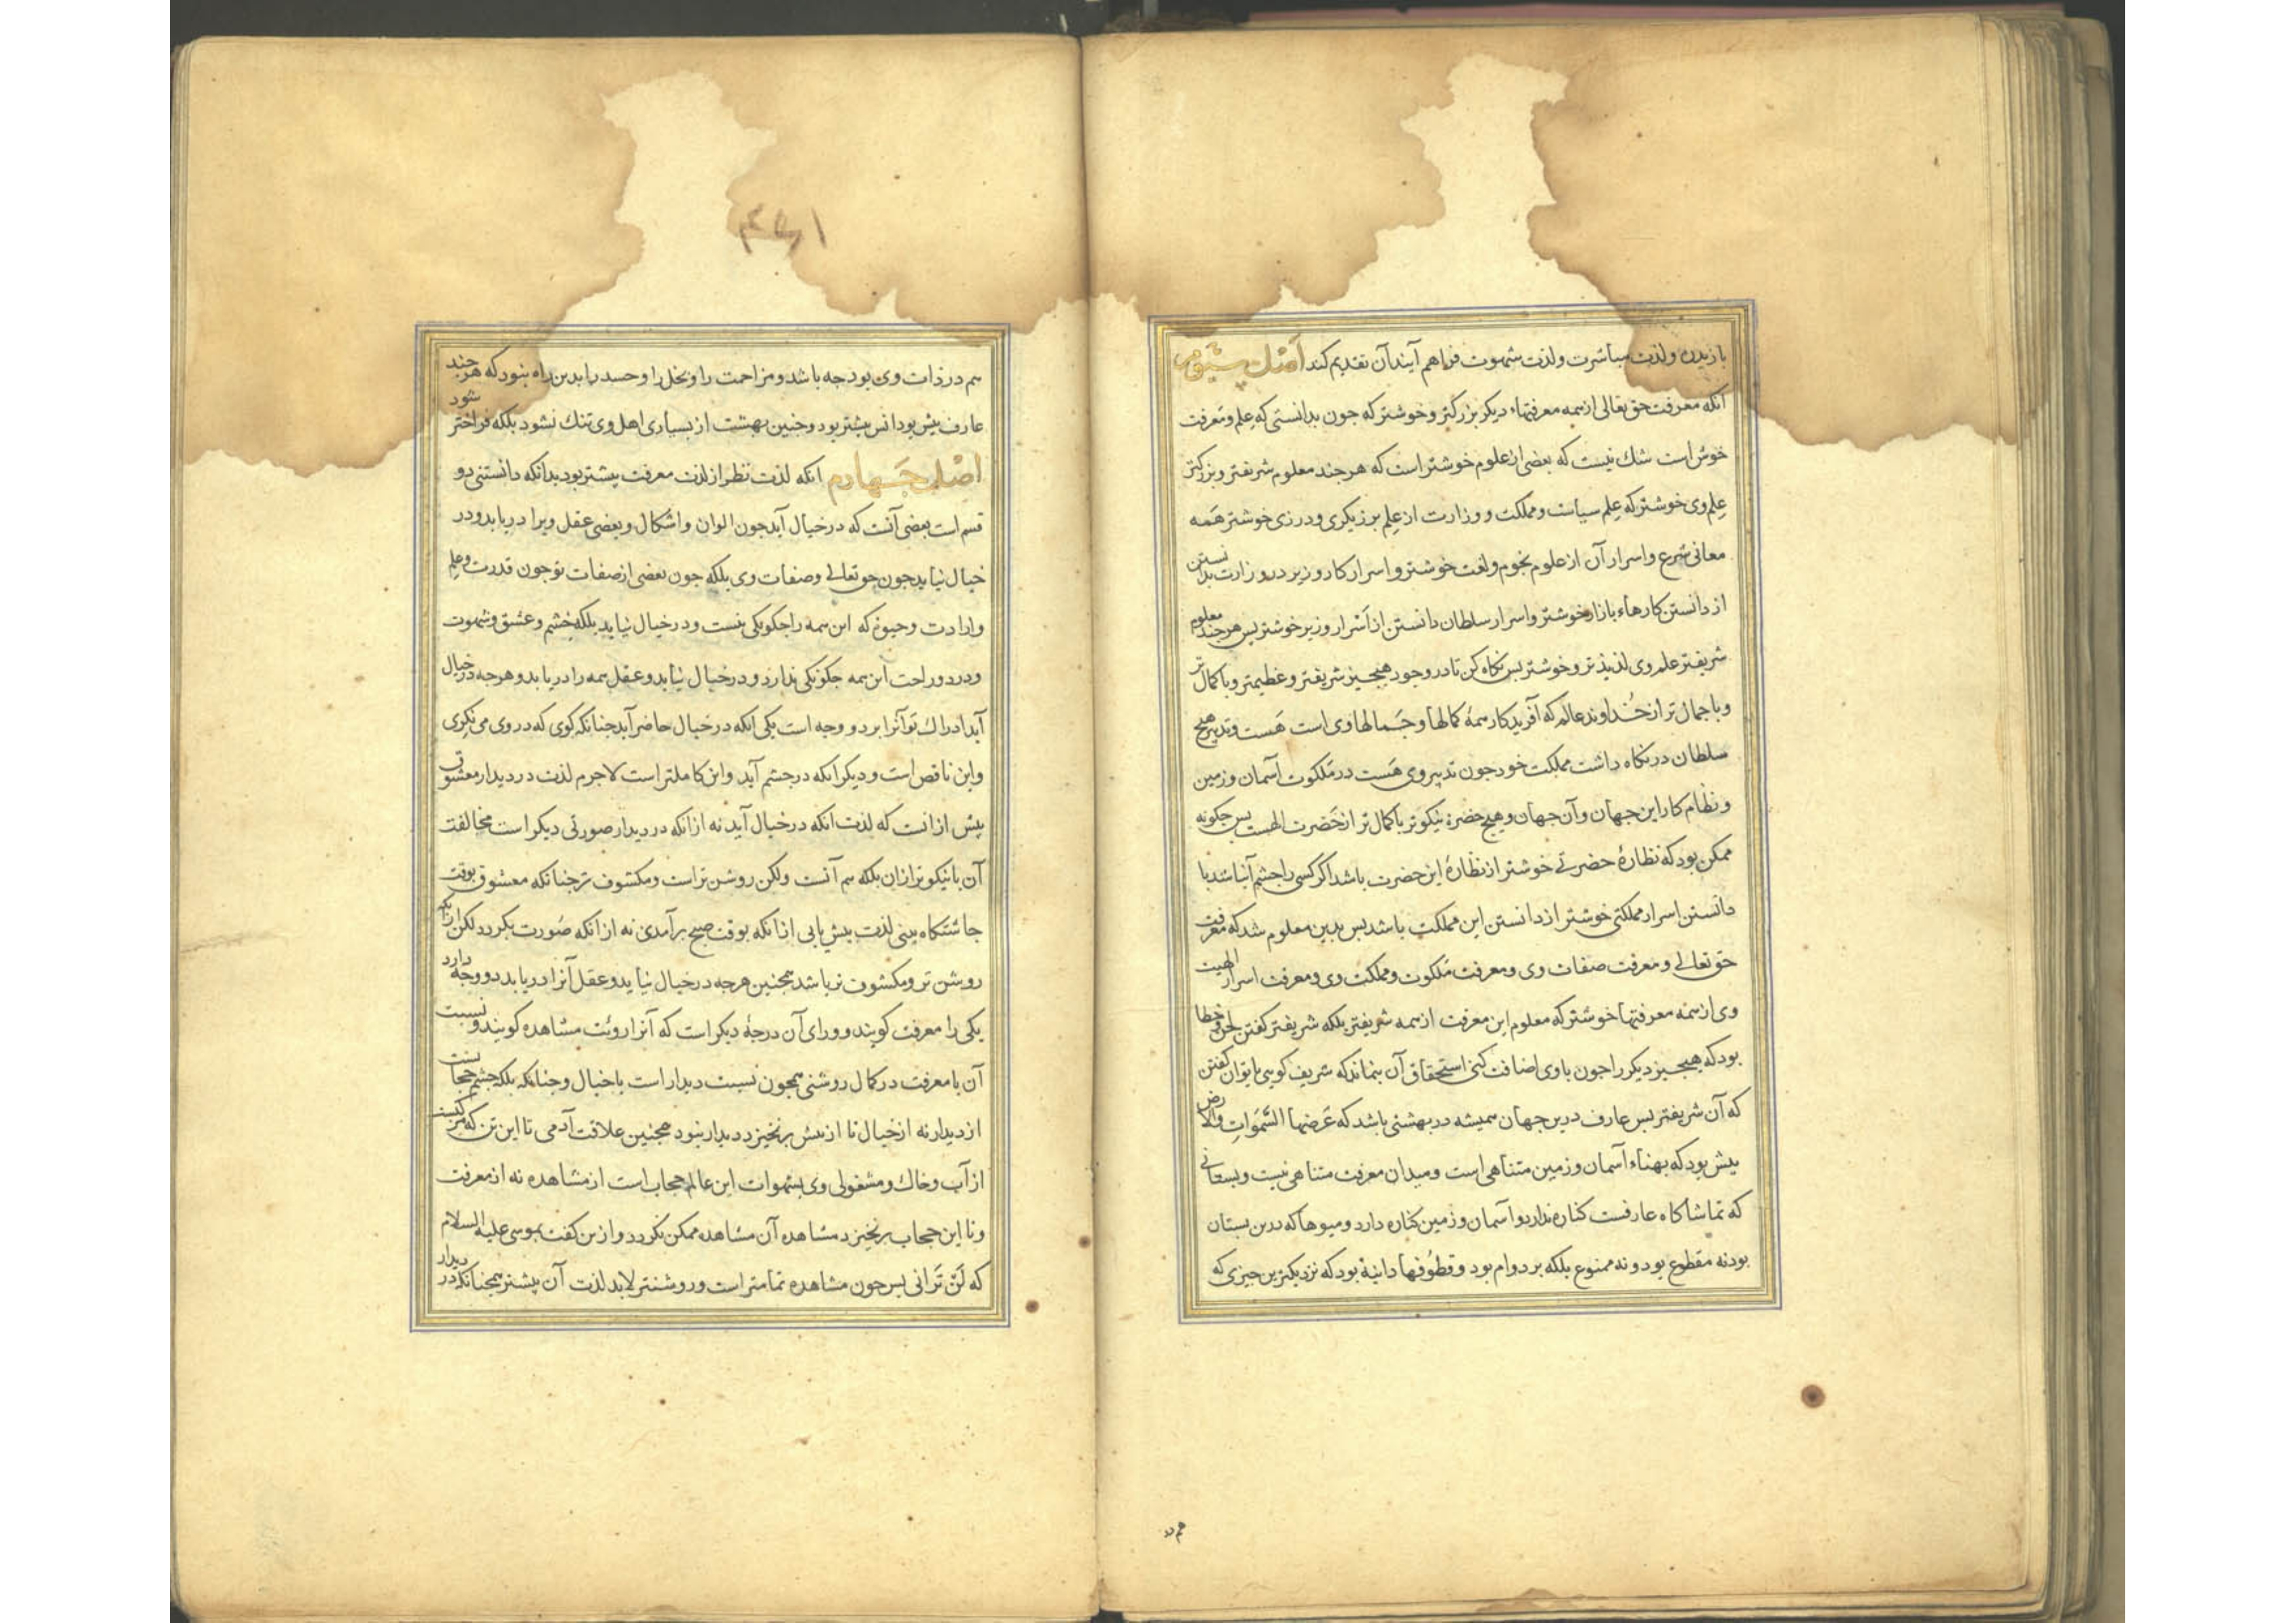 با زیدن ولذت مباشرت ولذت شهوت فراهم آیند آن تقدیم کند اصل سیوم
آنکه معرفت حق تعالی از همه معرفتهاء دیکر بزرکتر وخوشتر که جون بدانستی که علم ومعرفت
خوش است شك نیست که بعضی از علوم خوشتر است که هر جند معلوم شریفتر وبزرکتر
علم وی خوشتر که علم سیاست ومملکت ووزارت از علم برزیکری ودرزی خوشتر همه
معانی شرع واسرار آن از علوم نجوم ولغت خوشتر واسرار کار وزیر در وزارت بدانستن
از دانستن کارهاء بازار خوشتر واسرار سلطان دانستن از اسرار وزیر خوشتر بس هر جند معلوم
شریفتر علم وی لذیذتر وخوشتر بس نکاه کن تا در وجود هیچیز شریفتر وعظیمتر وباکمال تر
وباجمال تر از خداوند عالم که آفریدکار همهٔ کمالها وجمالها وی است هست وتدبیر هیچ
سلطان در نکاه داشت مملکت خود جون تدبیر وی هست در ملکوت آسمان وزمین
ونظام کار این جهان وآن جهان وهیچ حضرة نیکوتر باکمال تر از حضرت الهیت بس جکونه
ممکن بود که نظارهٔ حضرتی خوشتر از نظارهٔ این حضرت باشد اکر کسی را جشم آن باشد یا
دانستن اسرار مملکتی خوشتر از دانستن این مملکت باشد بس بدین معلوم شد که معرفت
حق تعالی ومعرفت صفات وی ومعرفت ملکوت ومملکت وی ومعرفت اسرار الهیت
وی از همه معرفتها خوشتر که معلوم این معرفت از همه شریفتر بلکه شریفتر کفتن لحن وخطا
بود که هیچیز دیکر را جون با وی اضافت کنی استحقاق آن نماند که شریف کویی یا توان کفتن
که آن شریفتر بس عارف درین جهان همیشه در بهشتی باشد که عرضها السموات والارض
بیش بود که بهناء آسمان وزمین متناهی است ومیدان معرفت متناهی نیست وبستانی
که تماشاکاه عارفست کناره ندارد وآسمان وزمین کناره دارد ومیوها که درین بستان
بود نه مقطوع بود ونه ممنوع بلکه بر دوام بود وقطوفها دانیة بود که نزدیکترین جیزی که
هم در
۳۷۱
هم در ذات وی بود جه باشد ومزاحمت را وبخل را وحسد را بدین راه نبود که هر جند
عارف بیش بود انس بیشتر بود وجنین بهشت از بسیاری اهل وی تنك نشود بلکه فراختر شود
اصل جهارم آنکه لذت نظر از لذت معرفت بیشتر بود بدانکه دانستنی دو
قسم است بعضی آنست که در خیال آید جون الوان واشکال وبعضی عقل ویرا دریابد ودر
خیال نیاید جون حق تعالی وصفات وی بلکه جون بعضی از صفات تو جون قدرت وعلم
وارادت وحیوة که این همه را جکونکی نیست ودر خیال نیاید بلکه خشم وعشق وشهوت
ودرد وراحت این همه جکونکی ندارد ودر خیال نیاید وعقل همه را دریابد وهرجه در خیال
آید ادراك تو آنرا بر دو وجه است یکی آنکه در خیال حاضر آید جنانکه کوی که در وی می نکری
واین ناقص است ودیکر آنکه در جشم آید واین کاملتر است لاجرم لذت در دیدار معشوق
بیش از انست که لذت آنکه در خیال آید نه از انکه در دیدار صورتی دیکر است مخالفت
آن یا نیکوتر از ان بلکه هم آنست ولکن روشن تر است ومکشوف تر جنانکه معشوق بوقت
جاشتکاه بینی لذت بیش یابی از انکه بوقت صبح برآمدن نه از انکه صورت بکردد لکن از انکه
روشن تر ومکشوف تر باشد همجنین هرجه در خیال نیاید وعقل آنرا دریابد دو وجه دارد
یکی را معرفت کویند وورای آن درجهٔ دیکر است که آنرا رویت مشاهده کویند ونسبت
آن با معرفت در کمال روشنی همجون نسبت دیدار است با خیال وجنانکه بلکه جشم حجابست
از دیدار نه از خیال تا از بیش برنخیزد دیدار نبود همجنین علاقت آدمی تا این تن که مرکبست
از آب وخاك ومشغولی وی بشهوات این عالم حجاب است از مشاهده نه از معرفت
وتا این حجاب برنخیزد مشاهده آن مشاهده ممکن نکردد واز ین کفت بموسی علیه السلام
که لن ترانی بس جون مشاهده تمامتر است وروشنتر لابد لذت آن بیشتر همجنانکه در دیدار